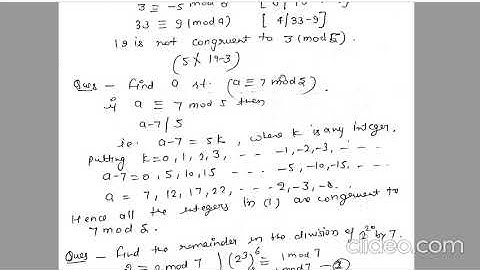 3 ≡ -5 mod
33 ≡ 9 (mod 4) [ 4/33-9 ]
19 is not congruent to 3 (mod 5).
(5 ∤ 19-3)
Ques - find a st. (a ≡ 7 mod 5).
if a ≡ 7 mod 5 then
a-7/5
ie. a-7 = 5k, where k is any integer.
putting k=0, 1, 2, 3, --- -1, -2, -3, ---
a-7=0, 5, 10, 15 --- -5, -10, -15, ---
a = 7, 12, 17, 22, --- 2, -3, -8.
Hence all the integers in (1) are congruent to
7 mod 5.
Ques - find the remainder in the division of 2^20 by 7.
mod 7 (2^3)^6 ≡ 1 mod 7
1 mod 7 - (2)
clideo.com